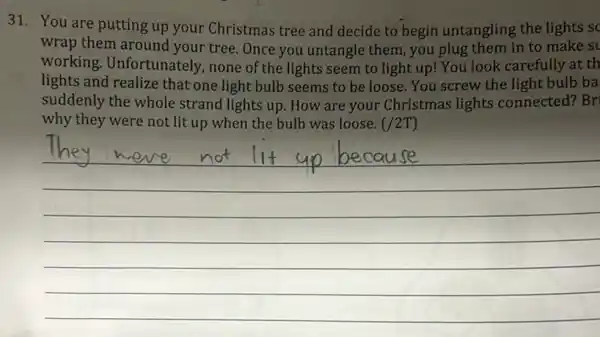 31. You are putting up your Christmas tree and decide to begin untangling the lights so
wrap them around your tree. Once you untangle them, you plug them in to make su
working. Unfortunately, none of the lights seem to light up! You look carefully at th
lights and realize that one light bulb seems to be loose. You screw the light bulb ba
suddenly the whole strand lights up. How are your Christmas lights connected? Bri
why they were not lit up when the bulb was loose. (/2T)
They were not lit up because